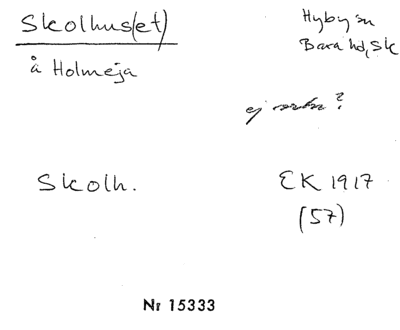 Skolhus(et)
Hyby sn
Bara hd, Sk
å Holmeja
ej
Skolh.
EK 1917
(57)
Nr 15333